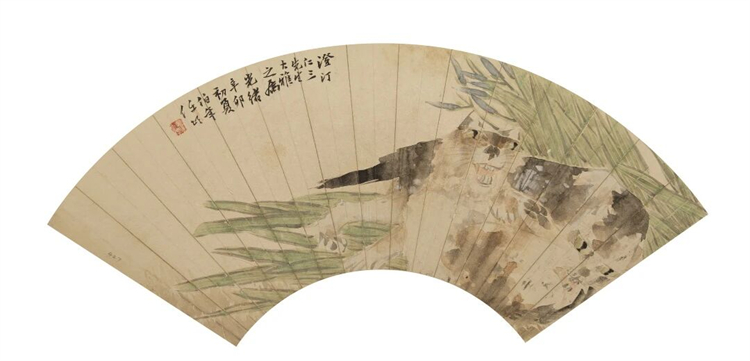 澄汀
仁三
先生
大雅
之属
光緒
辛卯
初夏
伯年
任頤